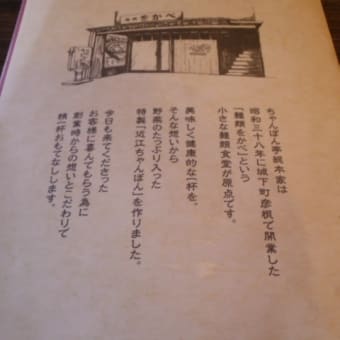 をかべ
ちゃんぽん亭総本家は
昭和三十八年に城下町彦根で開業した
「麺類をかべ」という
小さな麺類食堂が原点です。
美味しく健康的な一杯を。
そんな想いから
野菜のたっぷり入った
特製「近江ちゃんぽん」を作りました。
今日も来てくださった
お客様に喜んでもらう為に
創業時からの想いとこだわりで
精一杯おもてなしします。